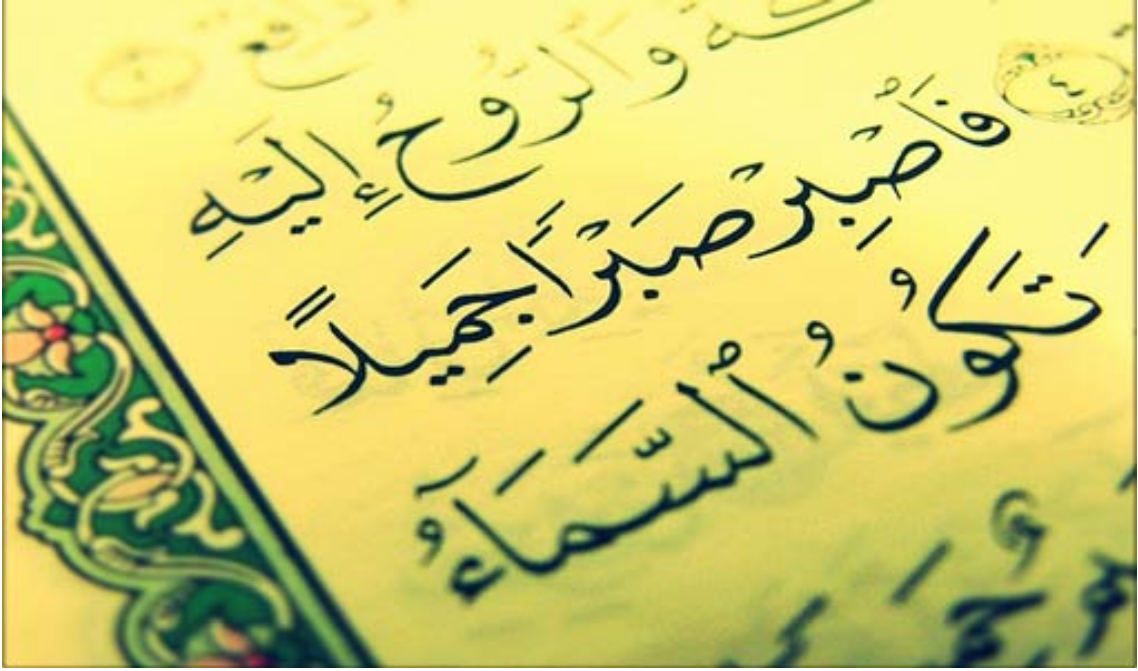 وَٱلرُّوحُ إِلَيْهِ
٤ فَٱصْبِرْ صَبْرًا جَمِيلًا
تَكُونُ ٱلسَّمَآءُ